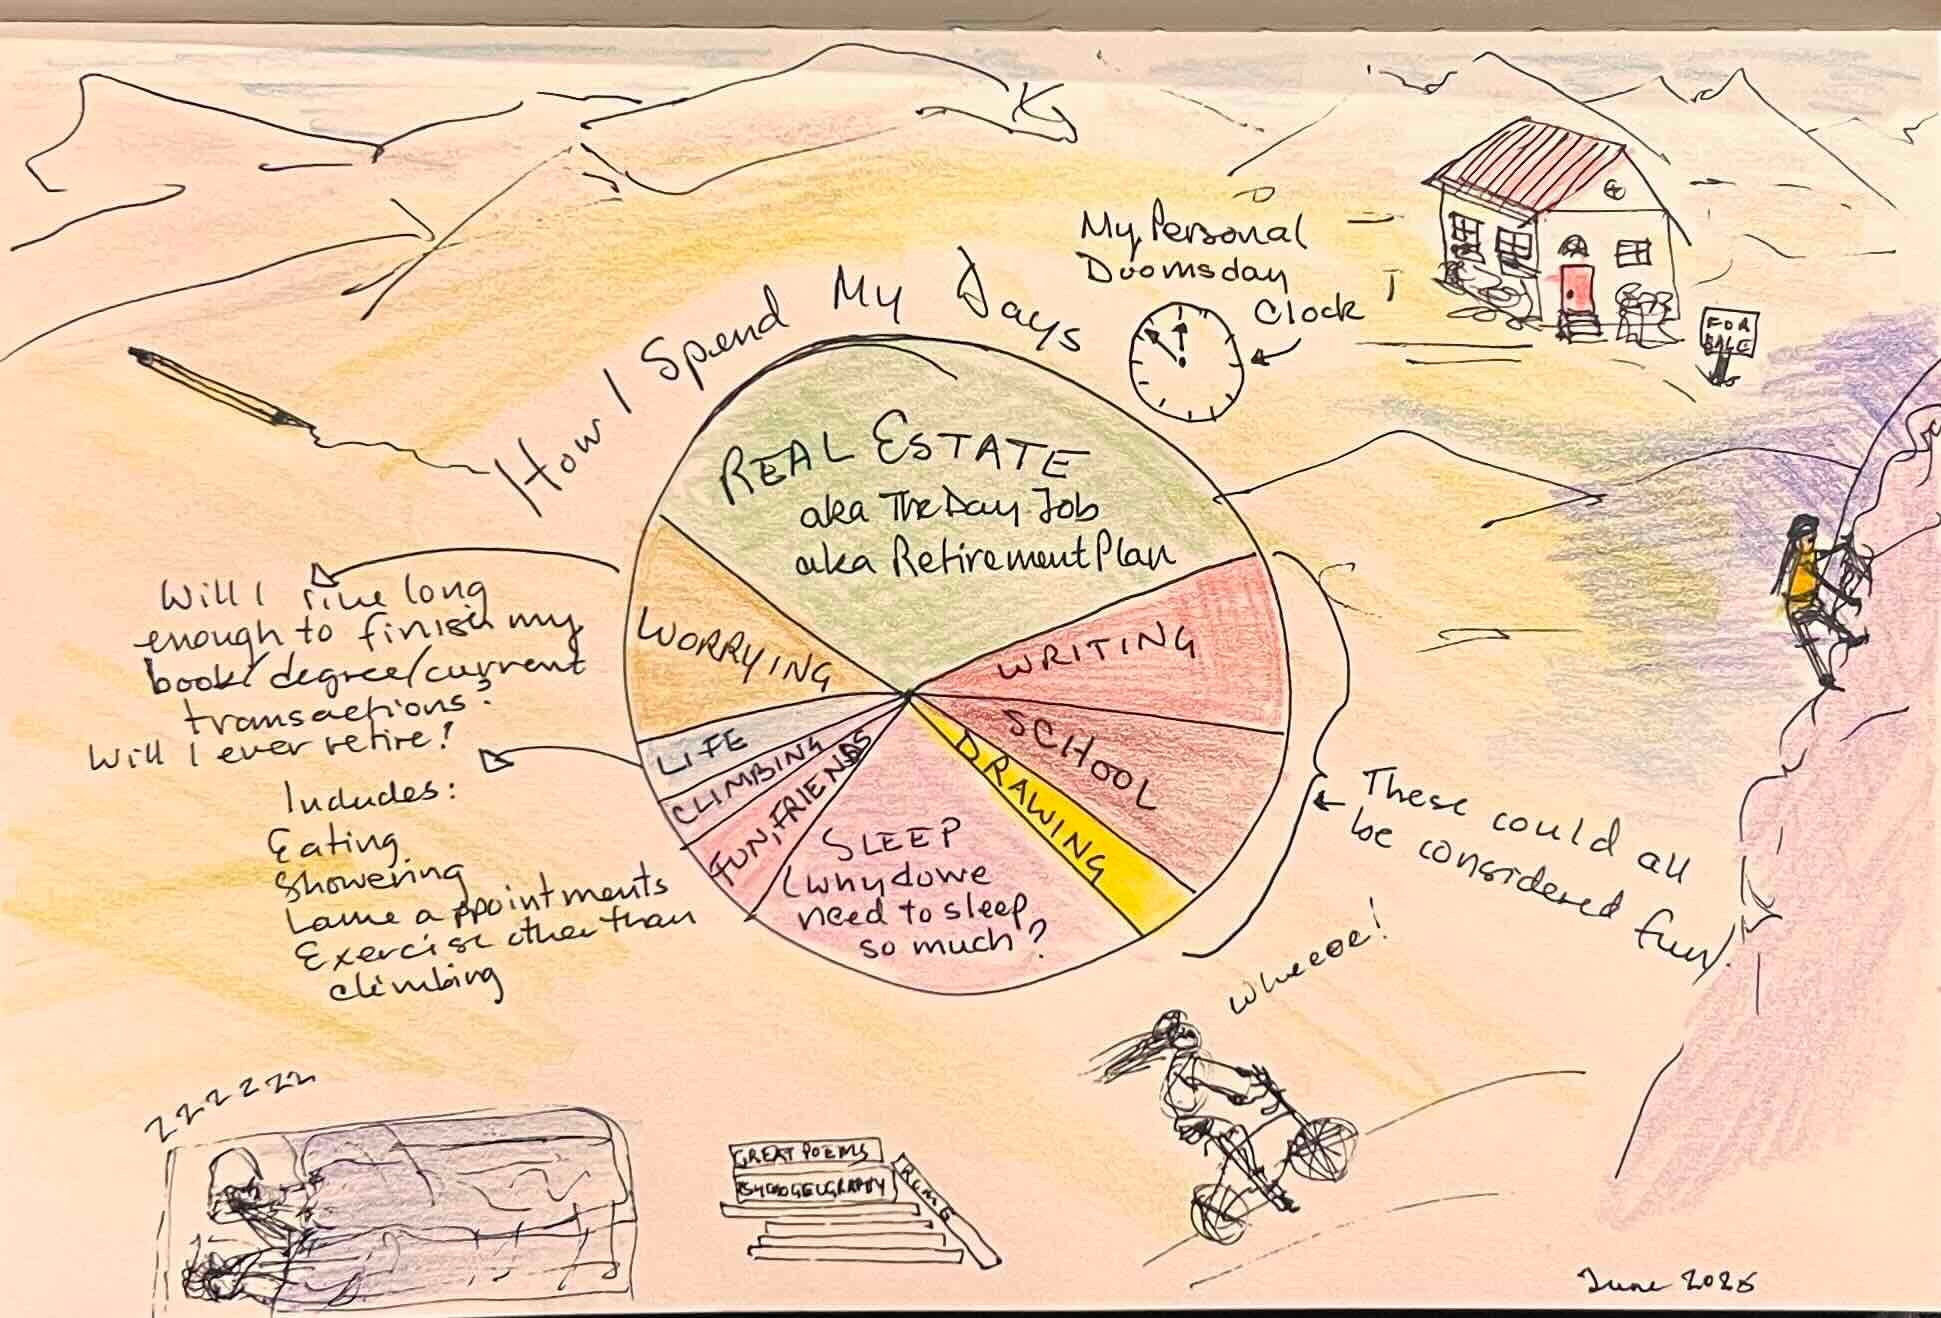 How I Spend My Days
My Personal
Doomsday
Clock
FOR
SALE
REAL ESTATE
aka The Day Job
aka Retirement Plan
WORRYING
WRITING
SCHOOL
DRAWING
LIFE
CLIMBING
FUN, FRIENDS
SLEEP
(why do we
need to sleep
so much?
Will I live long
enough to finish my
book/degree/current
transactions?
Will I ever retire?
Includes:
Eating
Showering
Lame appointments
Exercise other than
climbing
These could all
be considered fun!
wheeee!
zzzzzzz
GREAT POEMS
PSYCHOGEOGRAPHY
June 2025